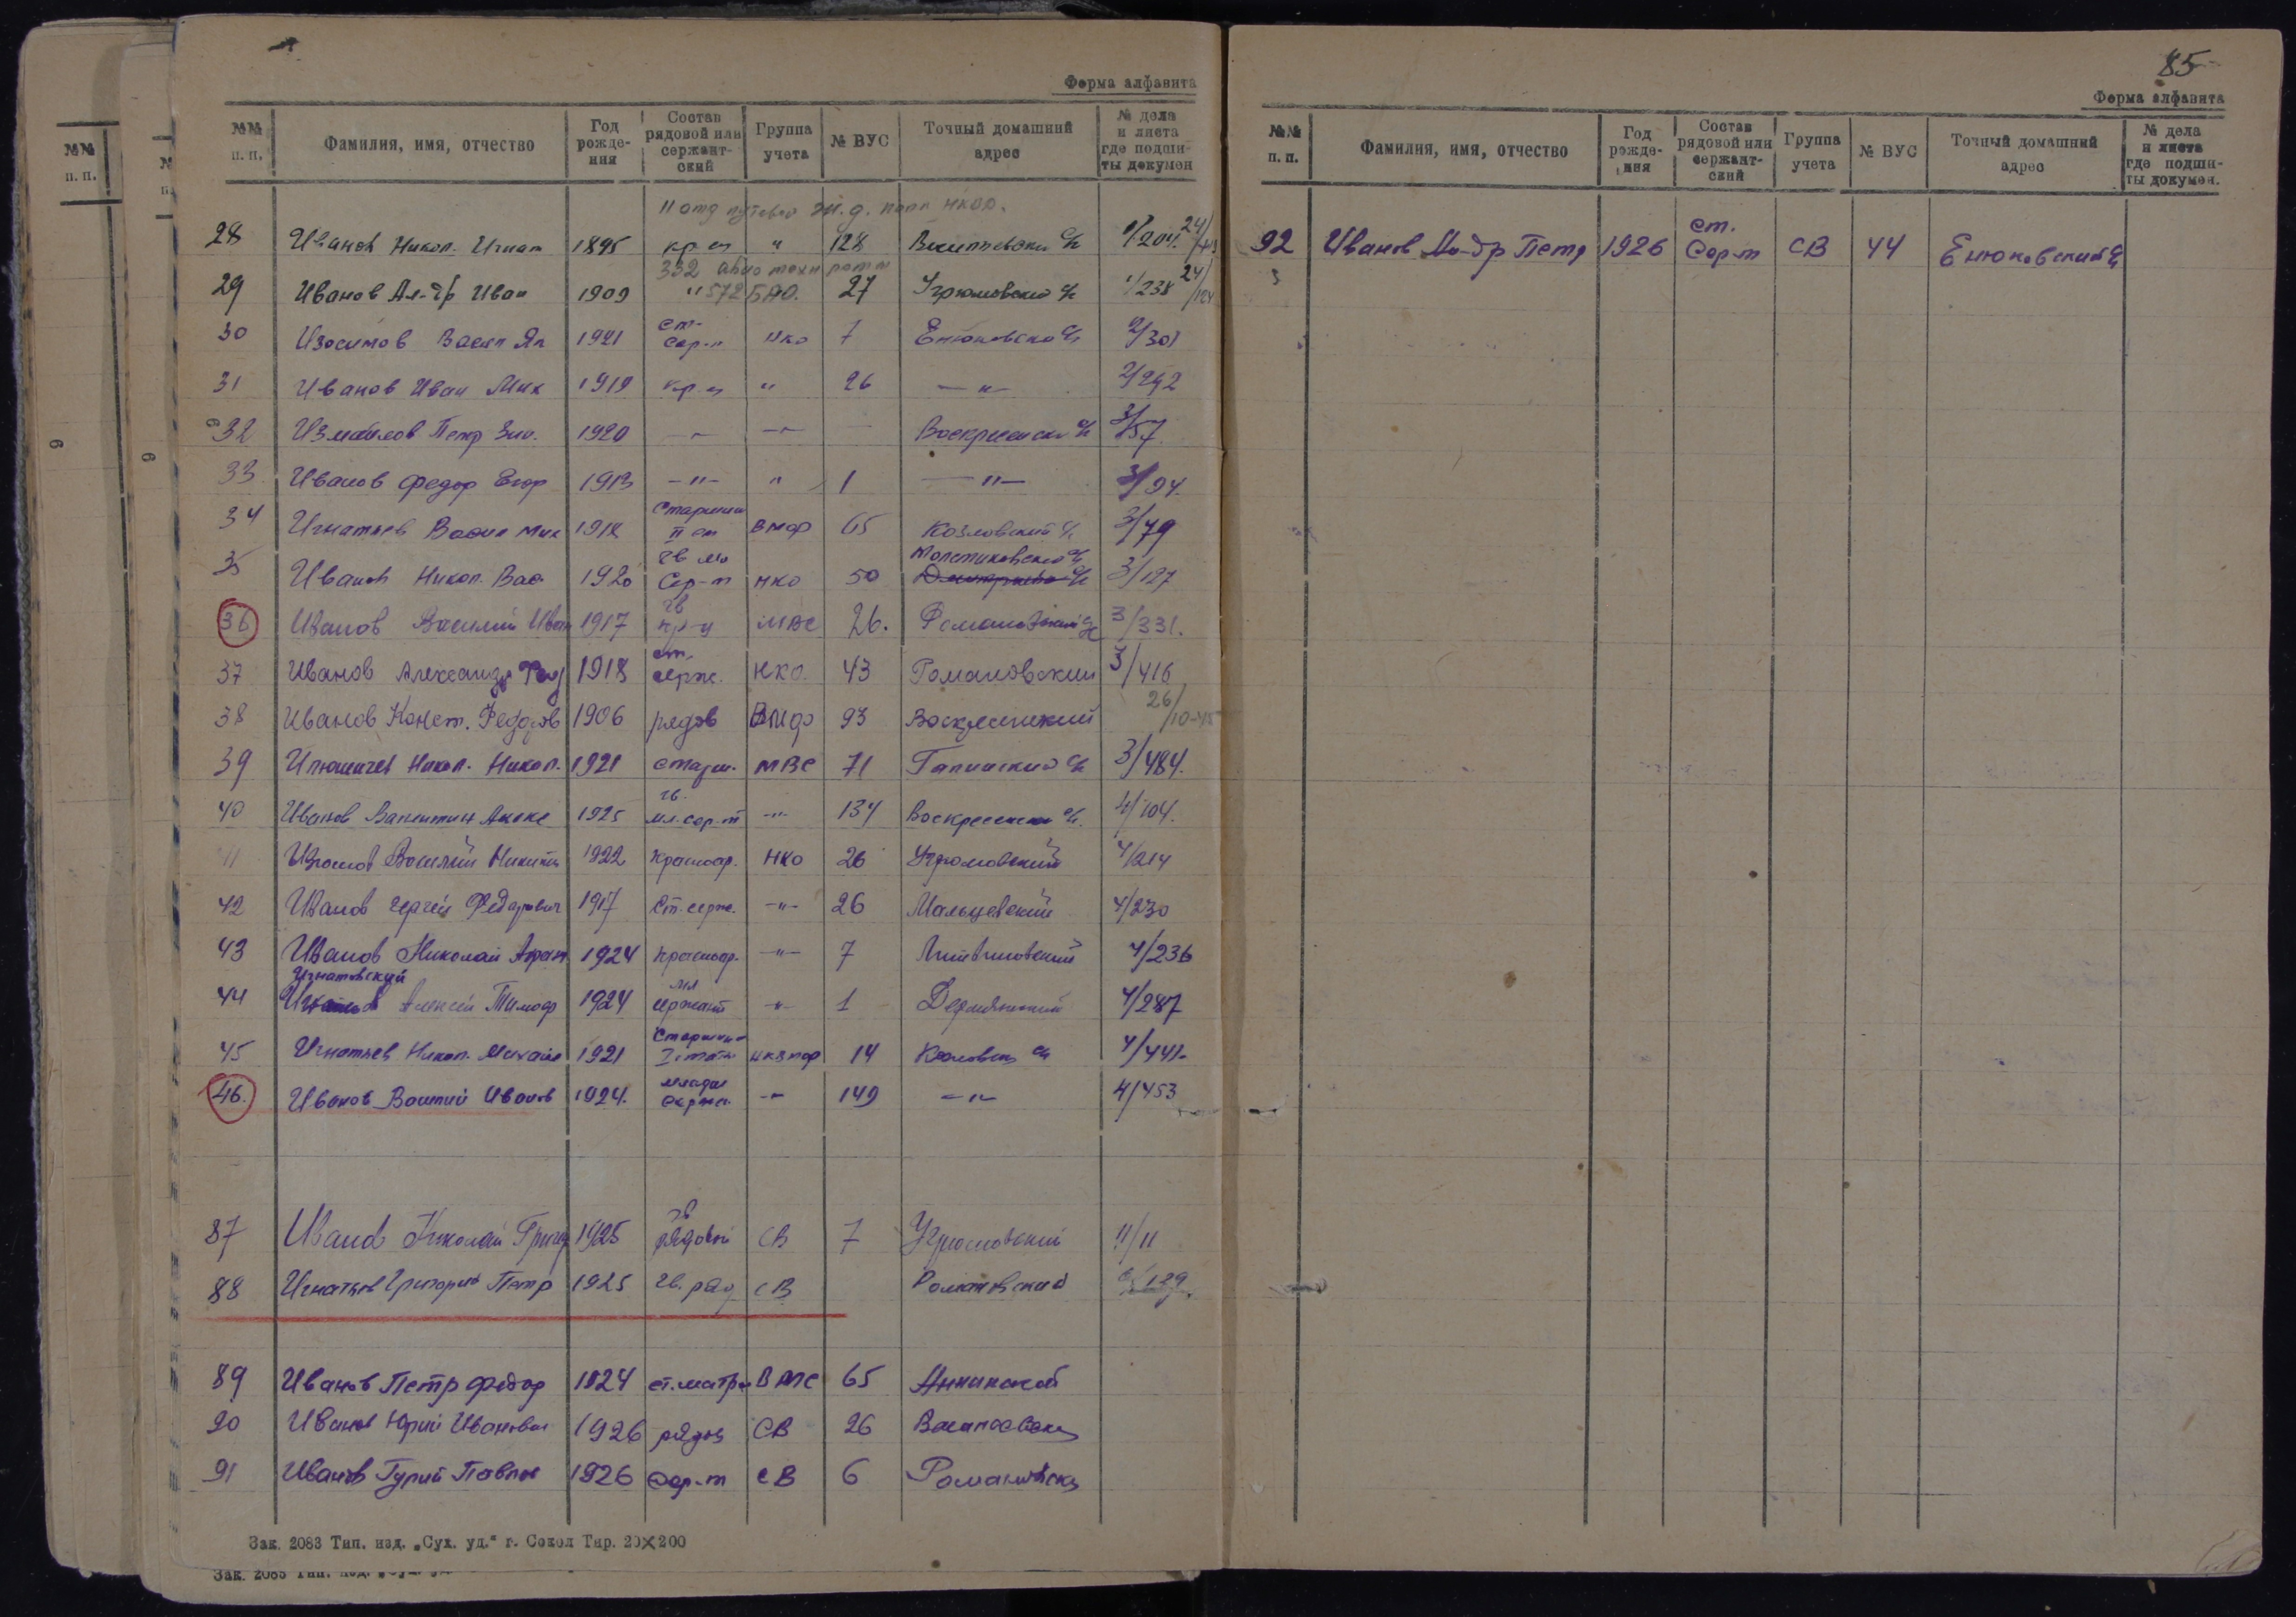 Форма алфавита
№№ п. п. Фамилия, имя, отчество Год рожде- ния Состав рядовой или сержант- ский Группа учета № ВУС Точный домашний адрес № дела и листа где подши- ты докумен
28 Иванов Никол. Игнат 1895 кр-ц " 128 с/с 1/204
332
29 Иванов Ал-др Иван 1909 " 572 БАО. 27 Угрюмовский с/с 1/238 24/124
30 Изосимов Васил 1921 ст- сер-т нко 7 Енюковско с/с 2/301
31 Иванов Иван Мих 1919 кр-ц " 26 — " — 2/292
32 Измайлов Петр Зин. 1920 — " — " — Воскресенски с/с 3/57
33 Иванов Федор Егор 1913 — " — " 1 — " — 3/94.
34 Игнатьев Васил Мих 1918 Старшина II ст ВМФ 65 Козловский с/с 3/79
35 Иванов Никол. Вас 1920 гв мл Сер-т нко 50 с/с 3/127
36 Иванов Василий Иван 1917 гв кр-ц МВС 26. с/с 3/331.
37 Иванов Александр Фед 1918 ст. серж. НКО. 43 Романовский 3/416
38 Иванов Конст. Федоров 1906 рядов ВМФ 93 Воскресенский 26/10-45
39 Никол. Никол. 1921 старш. МВС 71 с/с 3/484.
40 Иванов Валентин Алекс 1925 гв. мл. сер-т — " — 134 Воскресенски с/с. 4/104.
Василий Никит 1922 красноар. НКО 26 Угрюмовский 4/214
42 Иванов Сергей Федорович 1917 Ст. серж. — " — 26 Мальцевский 4/230
43 Иванов Николай Афан 1924 красноар. — " — 7 4/236
Игнатовский
44 Алексей Тимоф 1924 мл сержант — " — 1 4/287
45 Игнатьев Никол. Михайл 1921 Старшина 14 с/с 4/441-
46. Иванов Василий Иванов 1924. младш сержа. — " — 149 — " — 4/453
87 Иванов Николай Григор 1925 гв рядовой СВ 7 Угрюмовский 11/11
88 Игнатьев Григорий Петр 1925 гв. ряд СВ Романовский
89 Иванов Петр Федор 1924 ст. матро ВМС 65 Аннинской
90 Иванов Юрий Иванович 1926 рядов СВ 26
91 Иванов Гурий Павлов 1926 сер-т СВ 6 Романовски
Зак. 2083 Тип. изд. „Сух. уд.“ г. Сокол Тир. 20×200
85
Форма алфавита
№№ п. п. Фамилия, имя, отчество Год рожде- ния Состав рядовой или сержант- ский Группа учета № ВУС Точный домашний адрес № дела и листа где подши- ты докумен.
92 Иванов Петр 1926 ст. Сер-т СВ 44 Енюковский с/с
№№ п. п.
6
6